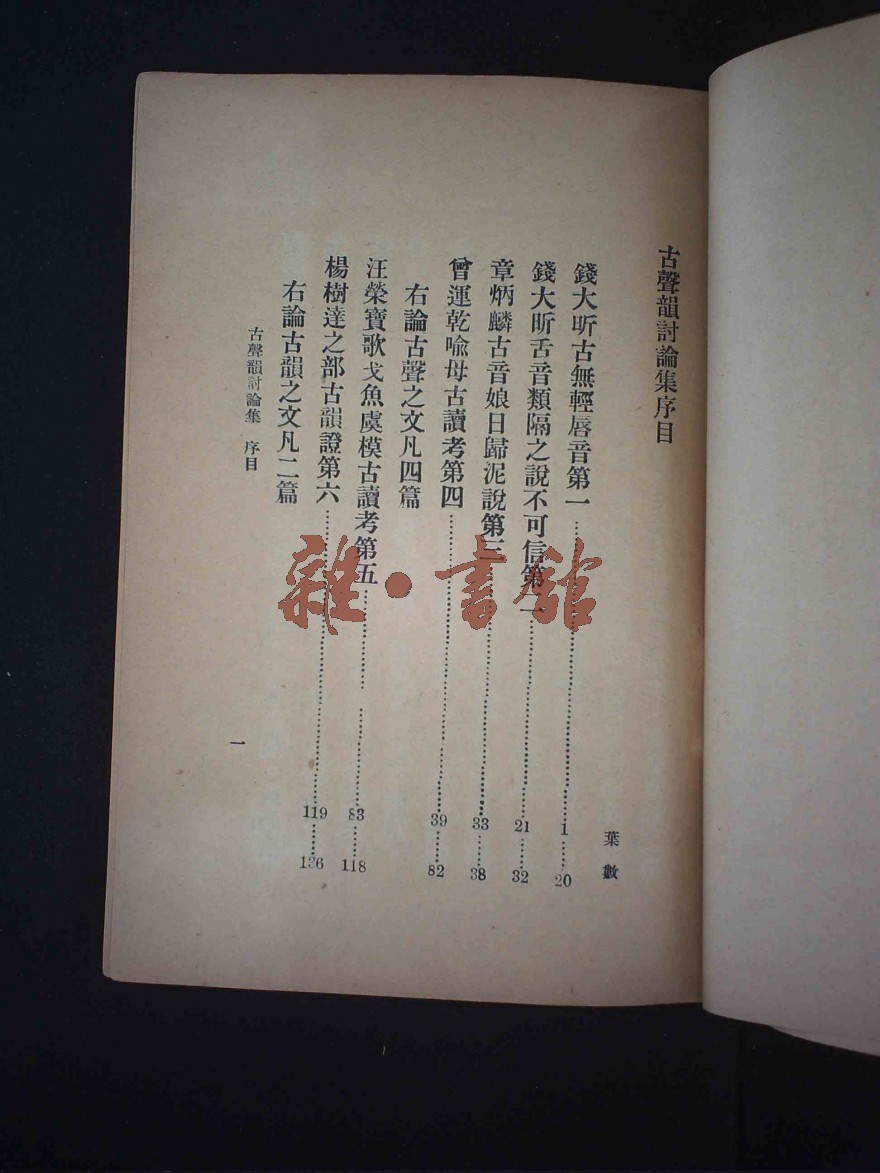 古聲韻討論集序目
葉數
錢大昕古無輕唇音第一……1……20
錢大昕舌音類隔之說不可信第二……21……32
章炳麟古音娘日歸泥說第三……33……38
曾運乾喩母古讀考第四……39……82
右論古聲之文凡四篇
汪榮寶歌戈魚虞模古讀考第五……83……118
楊樹達之部古韻證第六……119……136
右論古韻之文凡二篇
古聲韻討論集 序目
一
雜·書館